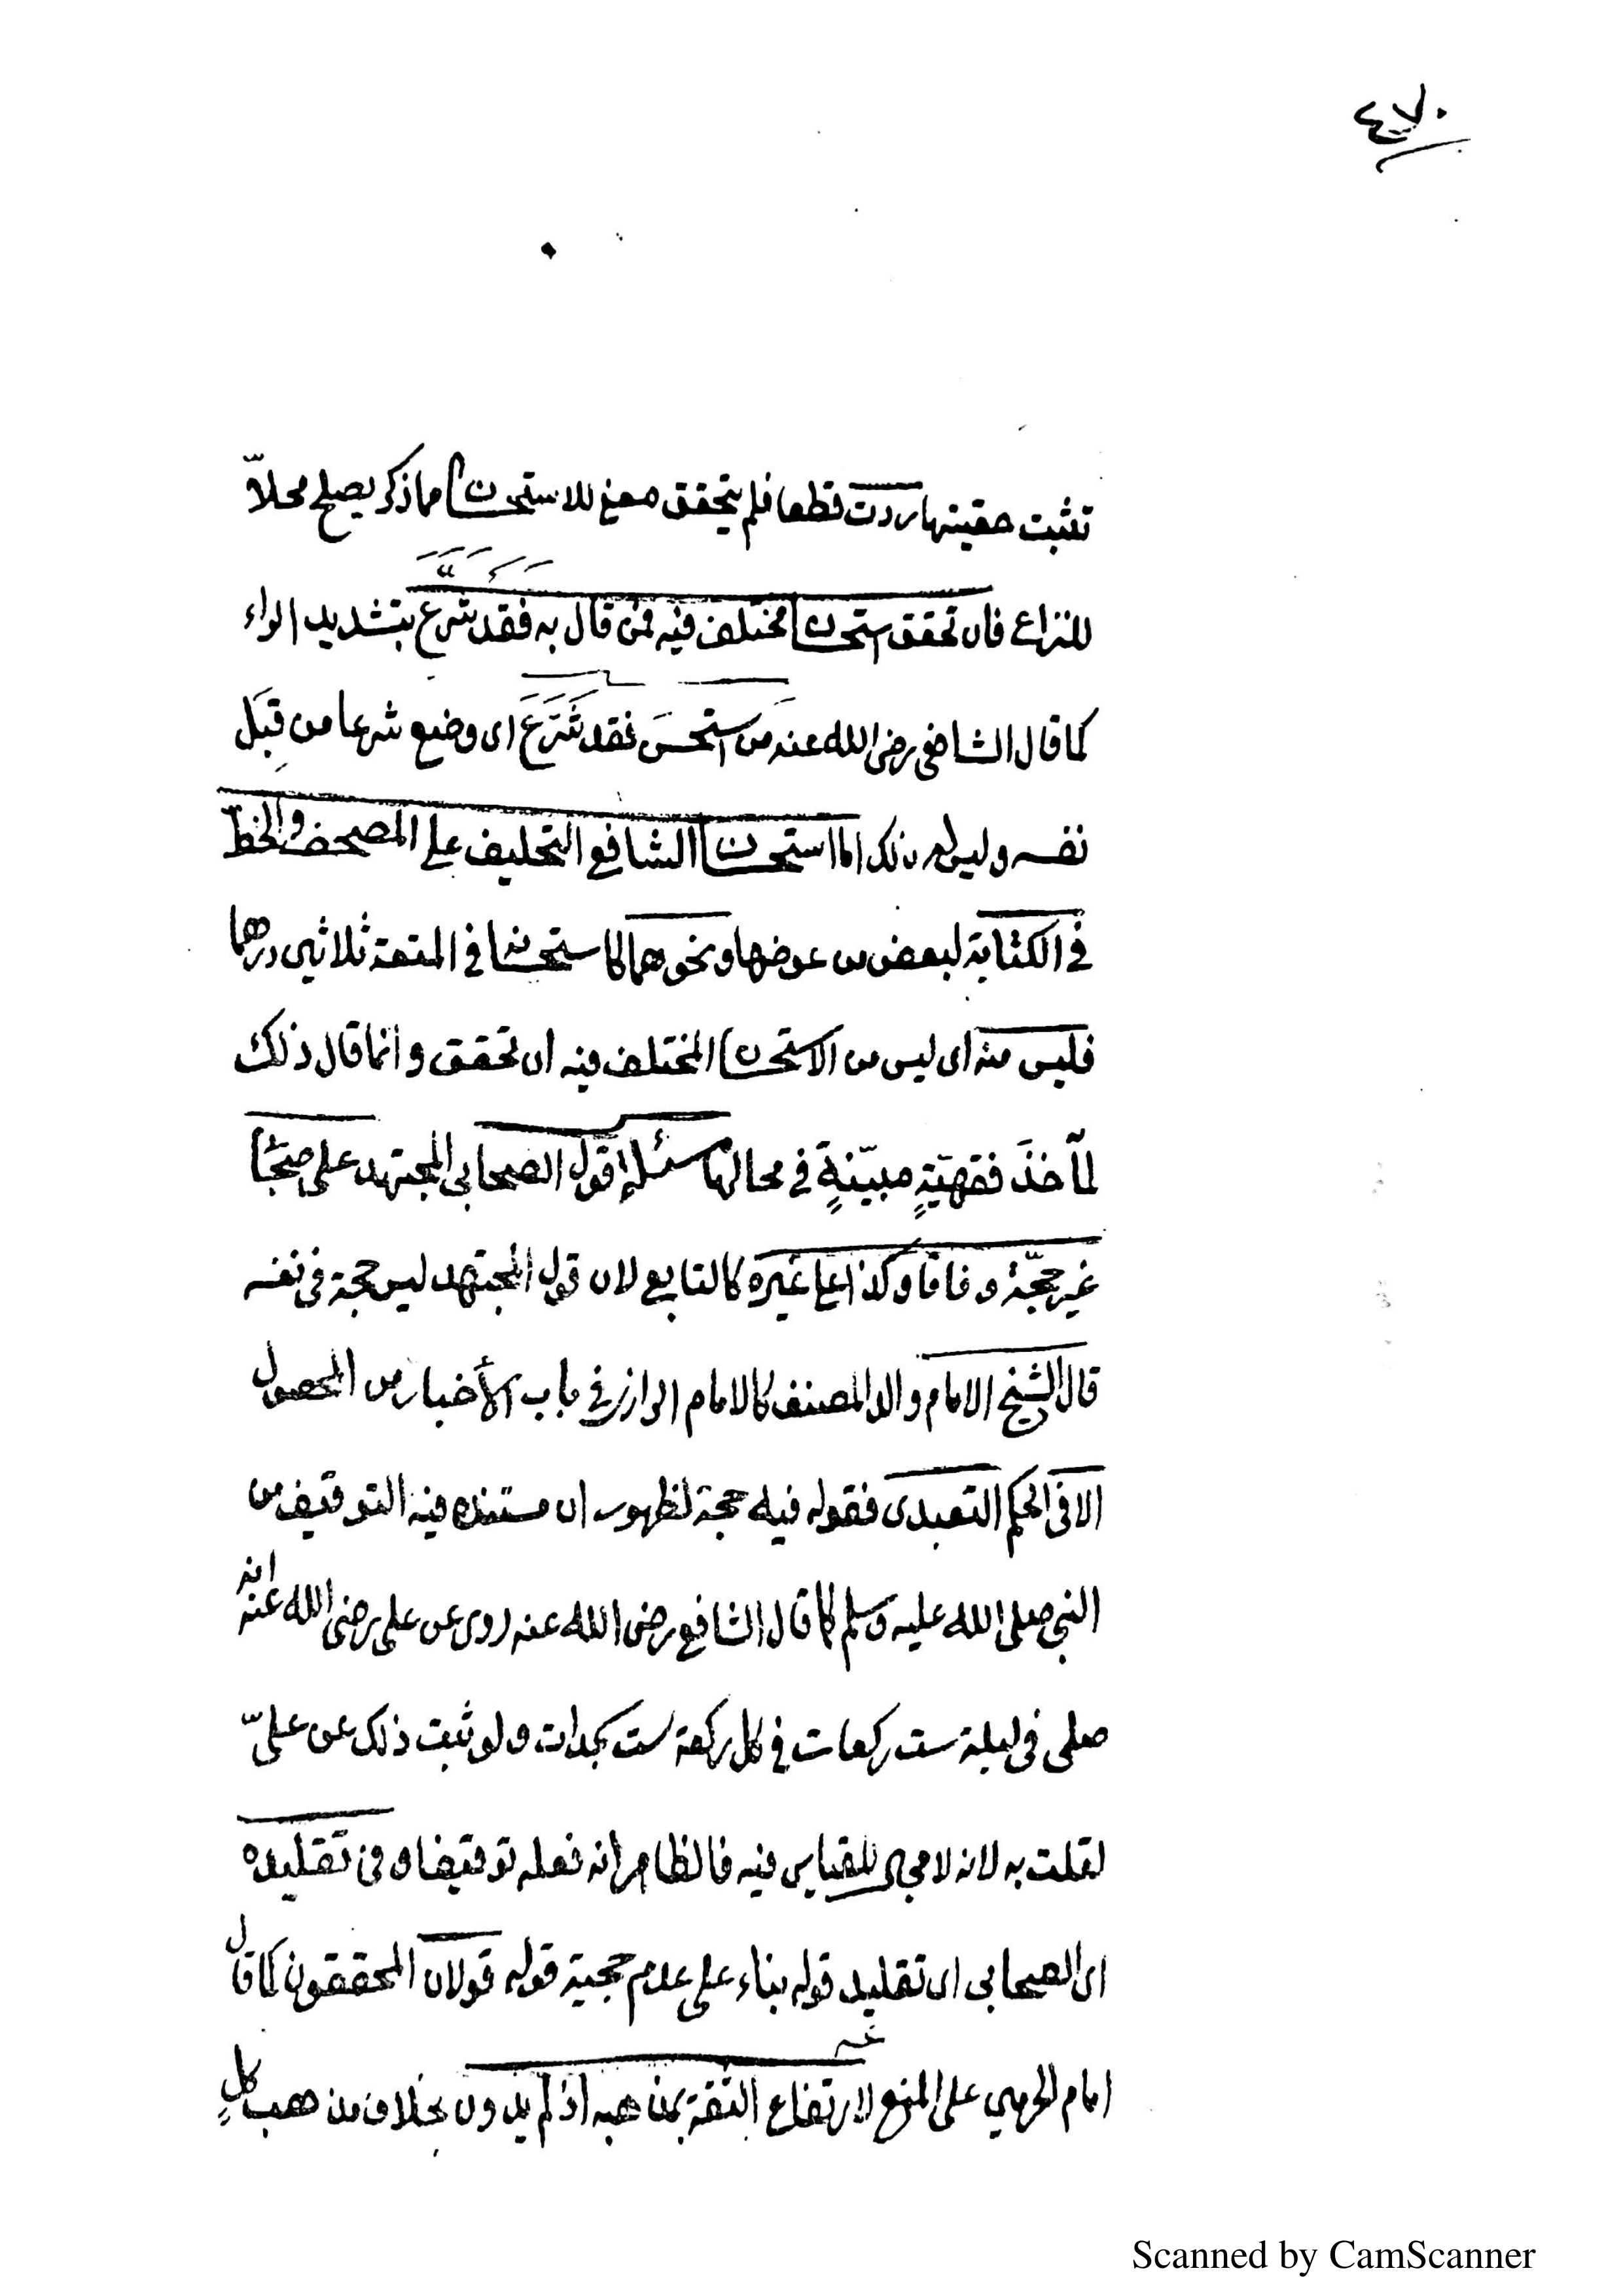 ٤٧٠
تثبت حقيتها ردت قطعا فلم يتحقق معنى للاستحسان مما ذكر يصلح محلاّ
للنزاع فان تحقق استحسان مختلف فيه فمن قال به فقد شرّع بتشديد الراء
كما قال الشافعى رضى الله عنه من استحسنَ فقد شَرَعَ اى وضع شرعا من قِبَل
نفسه وليس له ذلك اما استحسان الشافعى التحليف على المصحف والخطّ
فى الكتابة لبعض من عوضها ونحوهما كاستحسانه فى المتعة ثلاثين درهما
فليس منه اى ليس من الاستحسان المختلف فيه ان تحقق وانما قال ذلك
لمآخذَ فقهيّةٍ مبيّنةٍ فى محالها مسئلة قول الصحابى المجتهد على صحابى
غير حجّة وفاقا وكذا على غيره كالتابعى لان قول المجتهد ليس حجة فى نفسه
قال الشيخ الامام والد المصنف كالامام الرازى فى باب الأخبار من المحصول
الا فى الحكم التعبدى فقوله فيه حجة لظهور ان مستنده فيه التوقيف من
النبى صلى الله عليه وسلم كما قال الشافعى رضى الله عنه روى عن على رضى الله عنه انه
صلى فى ليلة ست ركعات فى كل ركعة ست سجدات ولو ثبت ذلك عن علىّ
لقلت به لانه لا مجال للقياس فيه فالظاهر انه فعله توقيفا وفى تقليده
اى الصحابى اى تقليد قوله بناء على عدم حجية قوله قولان المحققون كما قال
امام الحرمين على المنع لارتفاع الثقة بمذهبه اذ لم يدون بخلاف مذهب كلٍ
Scanned by CamScanner